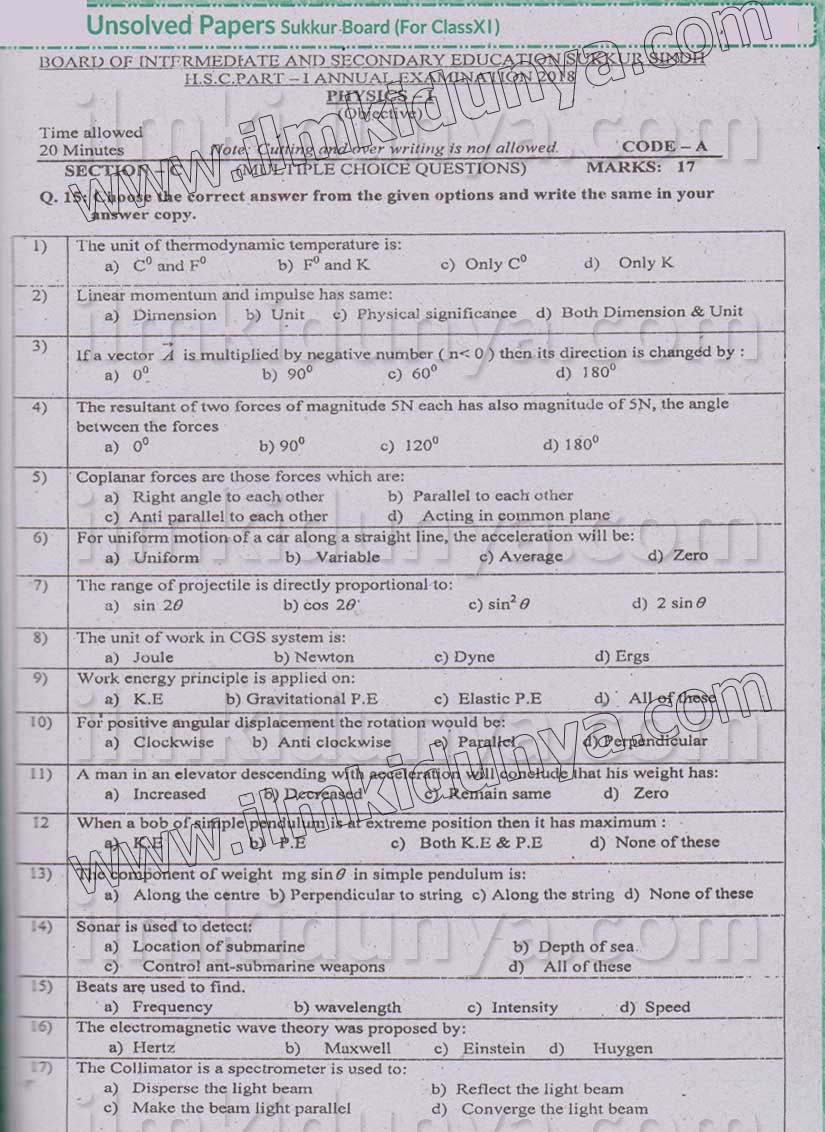 Unsolved Papers Sukkur Board (For ClassXI)
BOARD OF INTERMEDIATE AND SECONDARY EDUCATION SUKKUR SINDH
H.S.C.PART – I ANNUAL EXAMINATION 2018
PHYSICS – I
(Objective)
Time allowed
20 Minutes Note: Cutting and over writing is not allowed. CODE – A
SECTION – C (MULTIPLE CHOICE QUESTIONS) MARKS: 17
Q. 15: Choose the correct answer from the given options and write the same in your
answer copy.
1) The unit of thermodynamic temperature is:
a) C⁰ and F⁰ b) F⁰ and K c) Only C⁰ d) Only K
2) Linear momentum and impulse has same:
a) Dimension b) Unit c) Physical significance d) Both Dimension & Unit
3) If a vector A⃗ is multiplied by negative number ( n< 0 ) then its direction is changed by :
a) 0⁰ b) 90⁰ c) 60⁰ d) 180⁰
4) The resultant of two forces of magnitude 5N each has also magnitude of 5N, the angle
between the forces
a) 0⁰ b) 90⁰ c) 120⁰ d) 180⁰
5) Coplanar forces are those forces which are:
a) Right angle to each other b) Parallel to each other
c) Anti parallel to each other d) Acting in common plane
6) For uniform motion of a car along a straight line, the acceleration will be:
a) Uniform b) Variable c) Average d) Zero
7) The range of projectile is directly proportional to:
a) sin 2θ b) cos 2θ c) sin² θ d) 2 sin θ
8) The unit of work in CGS system is:
a) Joule b) Newton c) Dyne d) Ergs
9) Work energy principle is applied on:
a) K.E b) Gravitational P.E c) Elastic P.E d) All of these
10) For positive angular displacement the rotation would be:
a) Clockwise b) Anti clockwise c) Parallel d) Perpendicular
11) A man in an elevator descending with acceleration will conclude that his weight has:
a) Increased b) Decreased c) Remain same d) Zero
12 When a bob of simple pendulum is at extreme position then it has maximum :
a) K.E b) P.E c) Both K.E & P.E d) None of these
13) The component of weight mg sin θ in simple pendulum is:
a) Along the centre b) Perpendicular to string c) Along the string d) None of these
14) Sonar is used to detect:
a) Location of submarine b) Depth of sea
c) Control ant-submarine weapons d) All of these
15) Beats are used to find.
a) Frequency b) wavelength c) Intensity d) Speed
16) The electromagnetic wave theory was proposed by:
a) Hertz b) Maxwell c) Einstein d) Huygen
17) The Collimator is a spectrometer is used to:
a) Disperse the light beam b) Reflect the light beam
c) Make the beam light parallel d) Converge the light beam
www.ilmkidunya.com
www.ilmkidunya.com
ilmkidunya.com
ilmkidunya.com
ilmkidunya.com
ilmkidunya.com
ilmkidunya.com